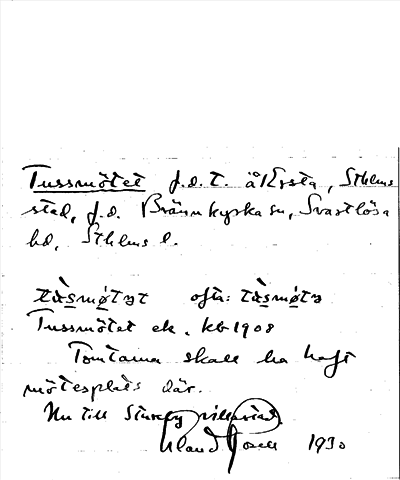 Tussmötet f.d.t. åkersta, Sthlms
stad, f.d. Brännkyrka sn, Svartlösa
hd, Sthlms l.
tùsmø̀tət ofta: tùsmø̀tə
Tussmötet ek. kb 1908
Tomtarna skall ha haft
mötesplats där.
Nu till Stureby villastad.
1930